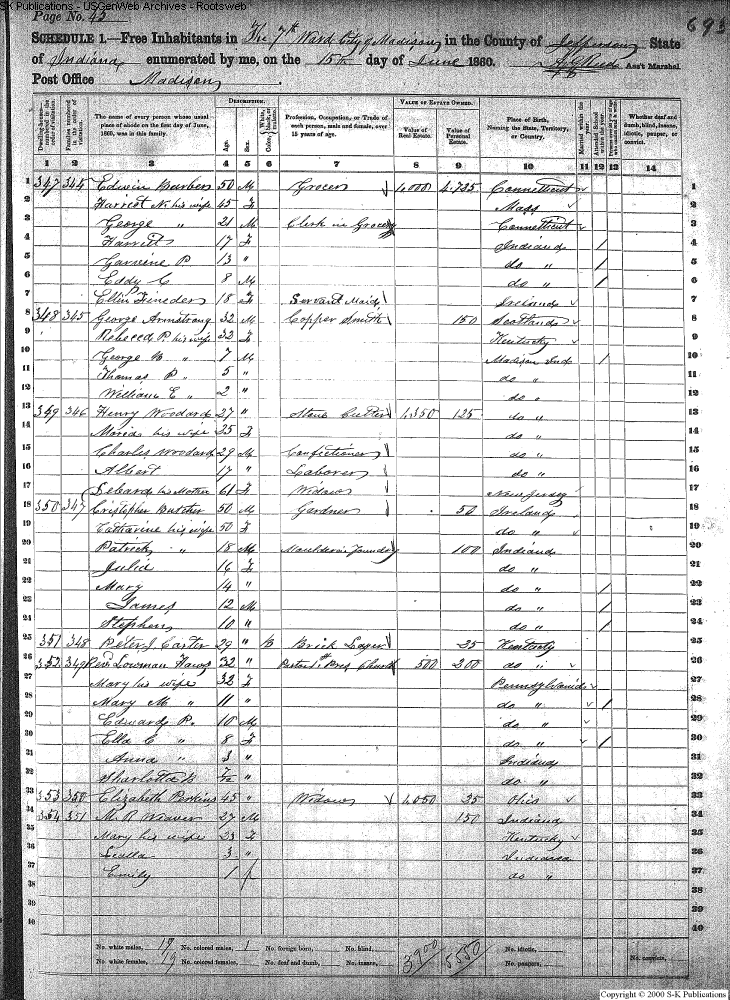 S-K Publications - USGenWeb Archives - Rootsweb
Page No. 43
693
SCHEDULE 1.—Free Inhabitants in The 7th Ward City of Madison in the County of Jefferson State
of Indiana enumerated by me, on the 15th day of June 1860. Ass't Marshal.
Post Office Madison
Dwelling-houses—numbered in the order of visitation. Families numbered in the order of visitation. The name of every person whose usual place of abode on the first day of June, 1860, was in this family. DESCRIPTION. Age. Sex. Color, White, black, or mulatto. Profession, Occupation, or Trade of each person, male and female, over 15 years of age. VALUE OF ESTATE OWNED. Value of Real Estate. Value of Personal Estate. Place of Birth, Naming the State, Territory, or Country. Married within the year. Attended School within the year. Whether deaf and dumb, blind, insane, idiotic, pauper, or convict.
1 2 3 4 5 6 7 8 9 10 11 12 13 14
1 347 344 Edwin 50 M Grocer 1,000 4,725 Connecticut 1
2 Harriet N. his wife 45 F Mass 2
3 George " 21 M Clerk in Grocery Connecticut 3
4 Harriet 17 F Indiana / 4
5 P. 13 " do " / 5
6 Eddy C 8 M do " / 6
7 Ellen 18 F Servant Maid Ireland 7
8 348 345 George Armstrong 32 M Copper Smith 150 Scotland 8
9 Rebecca P. his wife 32 F Kentucky 9
10 George " 7 M Madison Ind / 10
11 Thomas P. " 5 " do " 11
12 William E " 2 " do " 12
13 349 346 Henry Woodard 27 " Stone Cutter 1,350 125 do " 13
14 his wife 25 F do " 14
15 Charles Woodard 29 M Confectioner do " 15
16 Albert 17 " Laborer do " 16
17 his Mother 61 F Widow New Jersey 17
18 350 347 Cristopher Butcher 50 M Gardner 50 Ireland 18
19 Catharine his wife 50 F do " 19
20 Patrick " 18 M Moulder in Foundry 100 Indiana 20
21 Julia 16 F do " 21
22 Mary 14 " do " / 22
23 James 12 M do " / 23
24 Stephen 10 " do " / 24
25 351 348 Peter J. Carter 29 " B Brick Layer 25 Kentucky 25
26 352 349 Rev Lowman Hawes 32 " Pastor 1st Pres Church 500 200 do " 26
27 Mary his wife 32 F Pennsylvania 27
28 Mary M " 11 " do " / 28
29 Edward P. 10 M do " 29
30 Ella C " 8 F do " / 30
31 Anna " 3 " Indiana 31
32 Charlotta B " do " 32
33 353 350 Elizabeth Perkins 45 " Widow 1,050 25 Ohio 33
34 354 351 M. R Weaver 27 M 150 Indiana 34
35 Mary his wife 23 F Kentucky 35
36 3 " Indiana 36
37 Emily 1 f do " 37
38 38
39 39
40 40
No. white males, 19 No. colored males, 1 No. foreign born, No. blind, 3900 5550 No. idiotic,
No. white females, 19 No. colored females, No. deaf and dumb, No. insane, No. paupers, No. convicts,
Copyright © 2000 S-K Publications